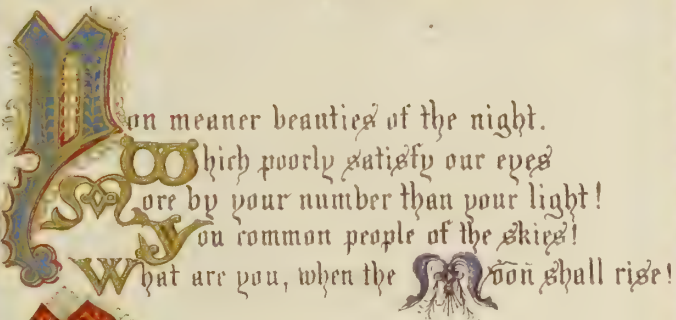 Yon meaner beauties of the night.
Which poorly satisfy our eyes
More by your number than your light!
You common people of the skies!
What are you, when the Moon shall rise!